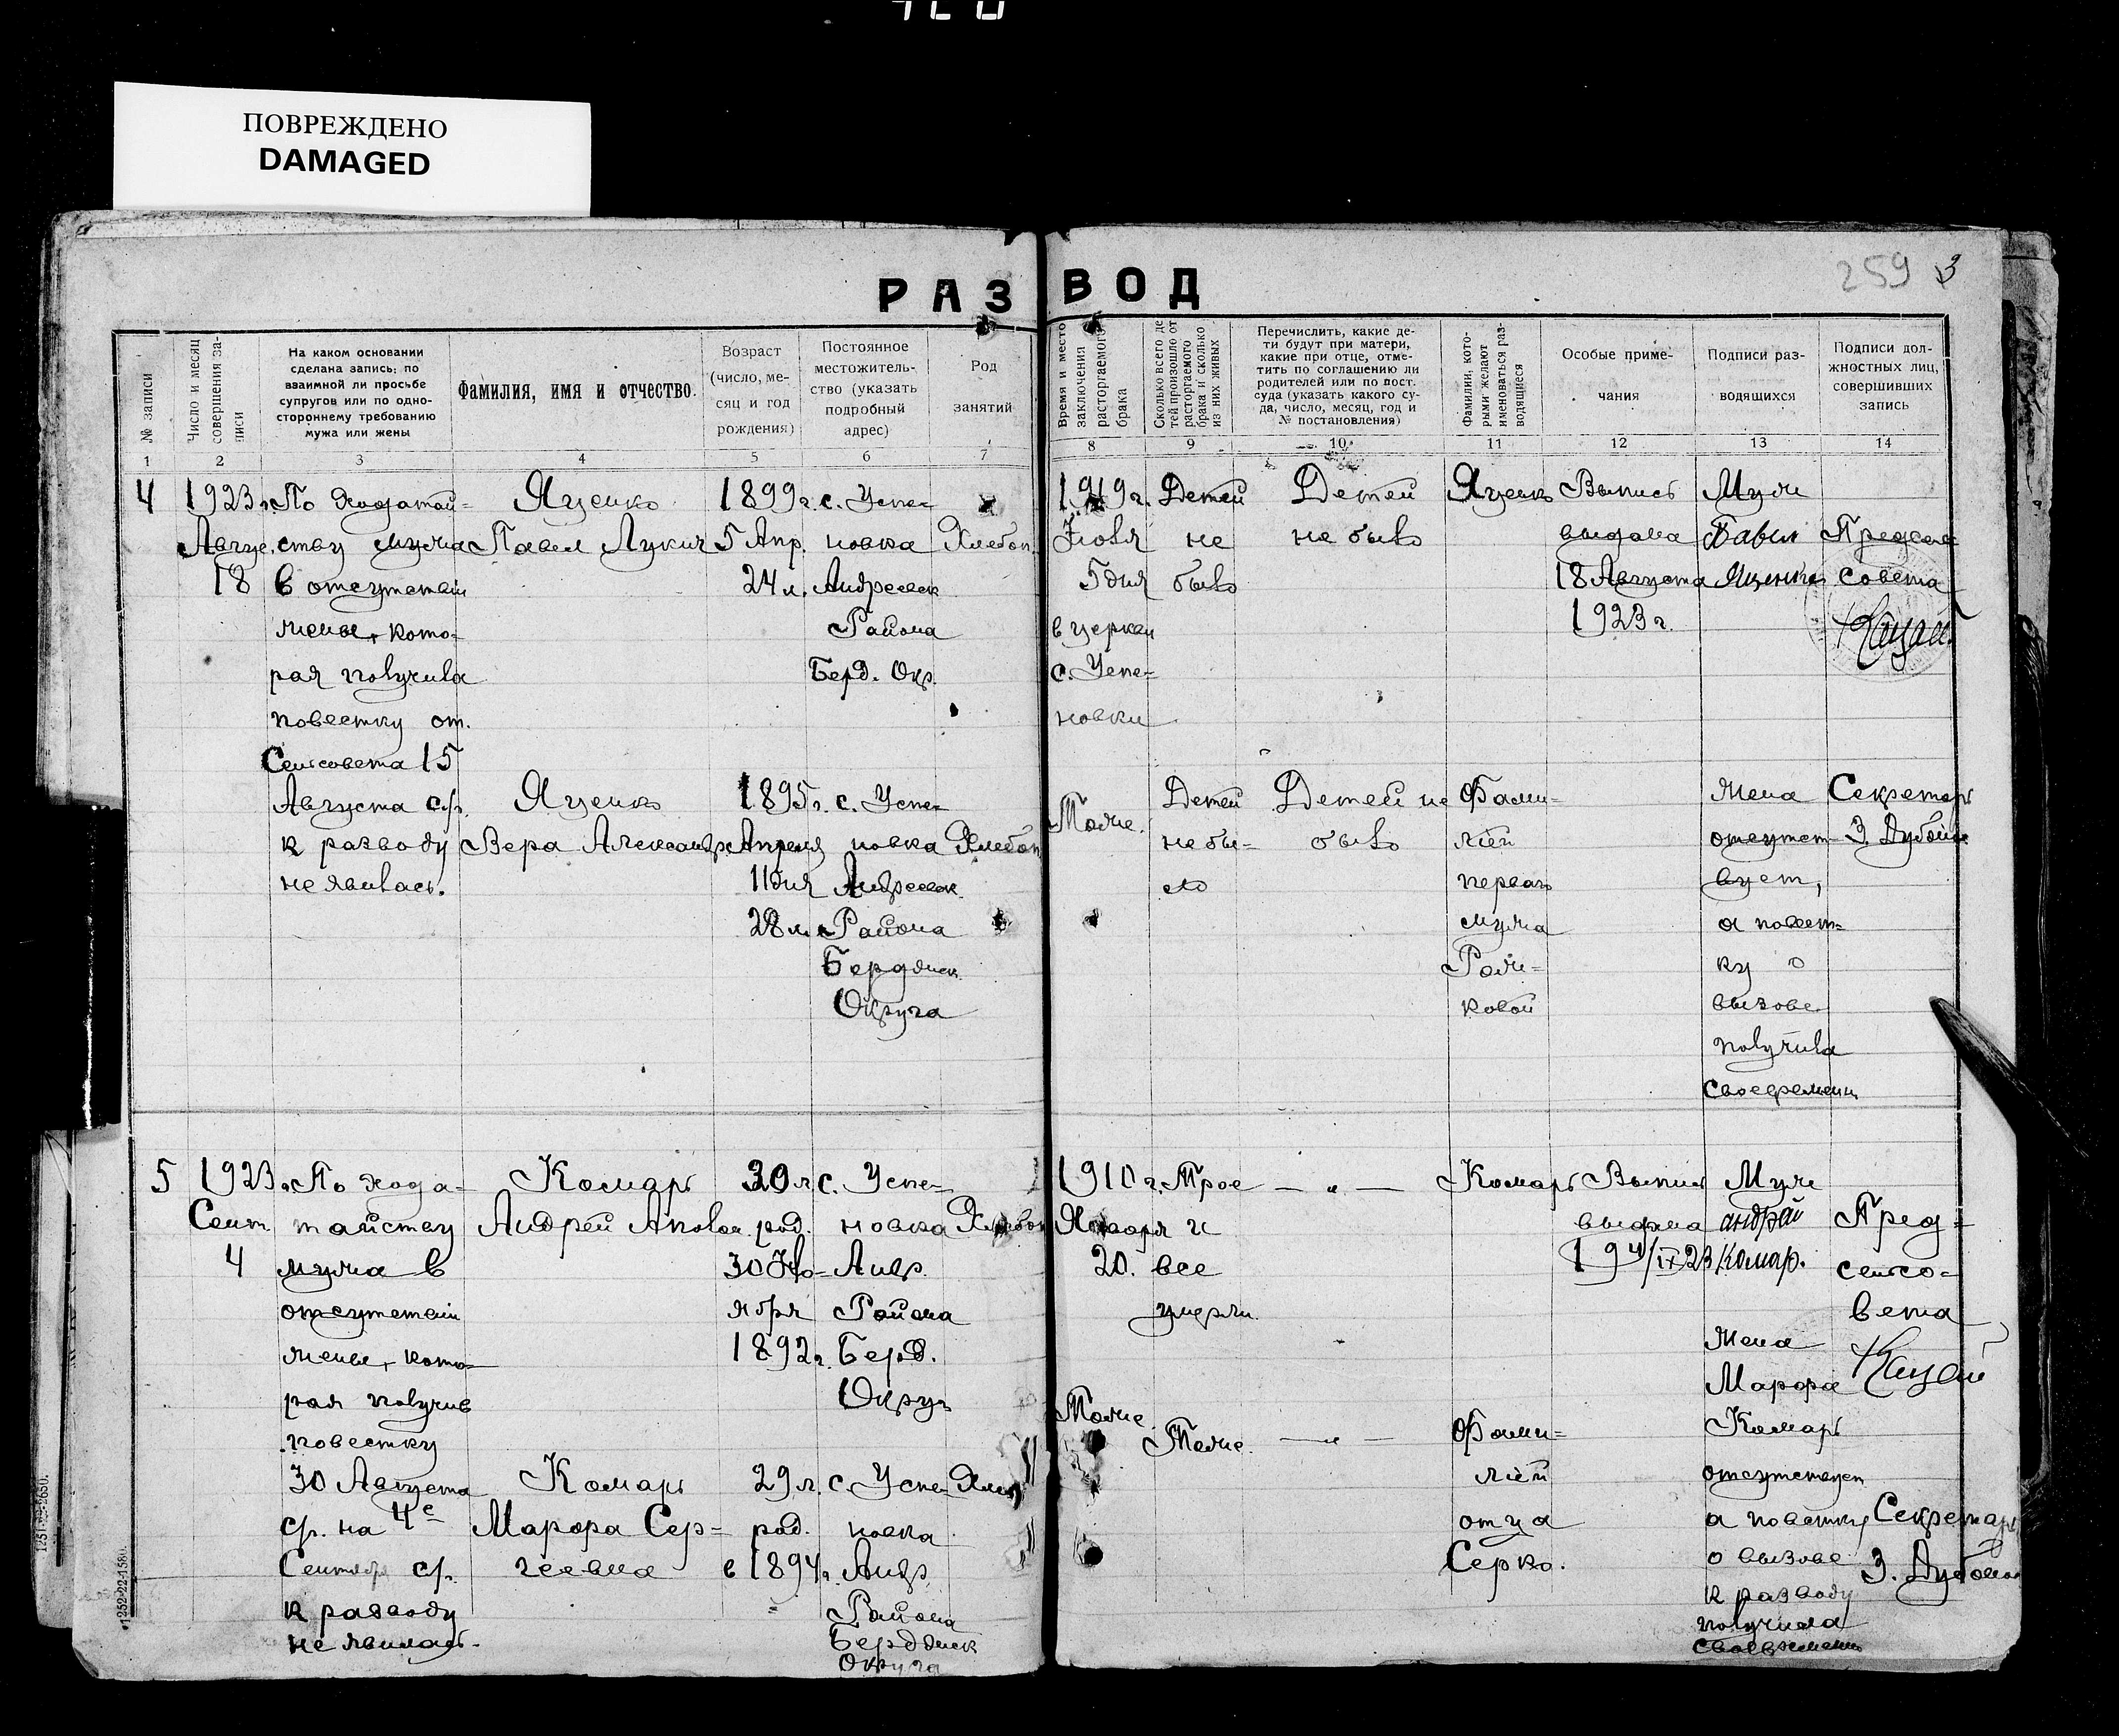 ПОВРЕЖДЕНО
DAMAGED
259 3
РАЗВОД
№ записи
Число и месяц совершения за-
писи
На каком основании
сделана запись: по
взаимной ли просьбе
супругов или по одно-
стороннему требованию
мужа или жены
Фамилия, имя и отчество.
Возраст
(число, ме-
сяц и год
рождения)
Постоянное
местожитель-
ство (указать
подробный
адрес)
Род
занятий
Время и место
заключения
расторгаемого
брака
Сколько всего де-
тей произошло от
расторгаемого
брака и сколько
из них живых
Перечислить, какие де-
ти будут при матери,
какие при отце, отме-
тить по соглашению ли
родителей или по пост.
суда (указать какого су-
да, число, месяц, год и
№ постановления)
Фамилии, кото-
рыми желают
именоваться раз-
водящиеся
Особые приме-
чания
Подписи раз-
водящихся
Подписи дол-
жностных лиц,
совершивших
запись
1 2 3 4 5 6 7 8 9 10 11 12 13 14
4
1923 г.
Авгус.
18
По ходатай-
ству мужа
в отсутствии
жены, кото-
рая получила
повестку от
Сельсовета 15
Августа с/г.
к разводу
не явилась.
Яценко
Павел Лукич
1899 г.
5 Апр.
24 л.
с. Успе-
новка
Андреевск
Района
Берд. Окр.
Хлебоп.
1919 г.
Июля
5 дня
в церкви
с. Успе-
новки
Детей
не
было
Детей
не было
Яценко
Выпись
выдана
18 Августа
1923 г.
Муж
Павел
Яценко
Председ
Совета
Яценко
Вера Александр
1895 г.
Апреля
11 дня
28 л.
с. Успе-
новка
Андреевск
Района
Бердянск
Округа
Хлебоп
Тоже.
Детей
не бы-
ло
Детей не
было
Фами-
лией
первого
мужа
Рож-
ковой
Жена
отсутст-
вует,
а повест-
ку о
вызове
получила
своевременн
Секретарь
З. Дубовик
5
1923 г.
Сент.
4
По хода-
тайству
мужа в
отсутствии
жены, кото-
рая получив
повестку
30 Августа
с/г. на 4е
Сентября с/г.
к разводу
не явилась.
Комарь
Андрей Аполон
30 л.
род.
30 Но-
ября
1892 г.
с. Успе-
новка
Андр.
Района
Берд.
Окру-
Хлебоп
1910 г.
Января
20.
Трое
и
все
умерли.
— „ —
Комарь
Выпись
выдана
19 4/IX 23
Муж
андрей
Комар.
Пред-
сельсо-
вета
Комарь
Марфа Сер-
геевна
29 л.
род.
в 1894 г.
с. Успе-
новка
Андр.
Района
Бердянск
Округа
Хлеб
Тоже.
Тоже.
— „ —
Фами-
лией
отца
Серко.
Жена
Марфа
Комарь
отсутствует
а повестку
о вызове
к разводу
получила
своевременно
Секретарь
З. Дубовик
1251-22-2650.
1252-22-1580.